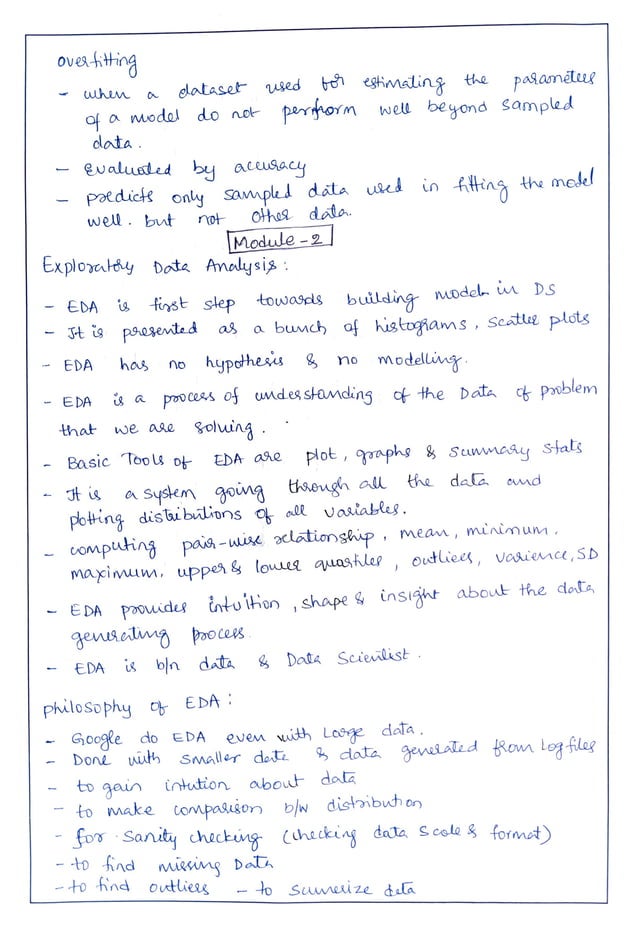 overfitting
- when a dataset used for estimating the parameters
of a model do not perform well beyond sampled
data.
- Evaluated by accuracy
- predicts only sampled data used in fitting the model
well. but not other data.
Module - 2
Exploratory Data Analysis :
- EDA is first step towards building model in DS
- It is presented as a bunch of histograms, scatter plots
- EDA has no hypothesis & no modelling.
- EDA is a process of understanding of the Data of problem
that we are solving.
- Basic Tools of EDA are plot, graphs & summary stats
- It is a system going through all the data and
plotting distributions of all variables.
- computing pair-wise relationship, mean, minimum,
maximum, upper & lower quartiles, outliers, varience, SD
- EDA provides intuition, shape & insight about the data
generating process.
- EDA is b/n data & Data Scientist.
philosophy of EDA :
- Google do EDA even with Large data.
- Done with smaller data & data generated from log files
- to gain intution about data
- to make comparison b/w distribution
- for sanity checking (checking data scale & format)
- to find missing Data
- to find outliers - to sumerize data